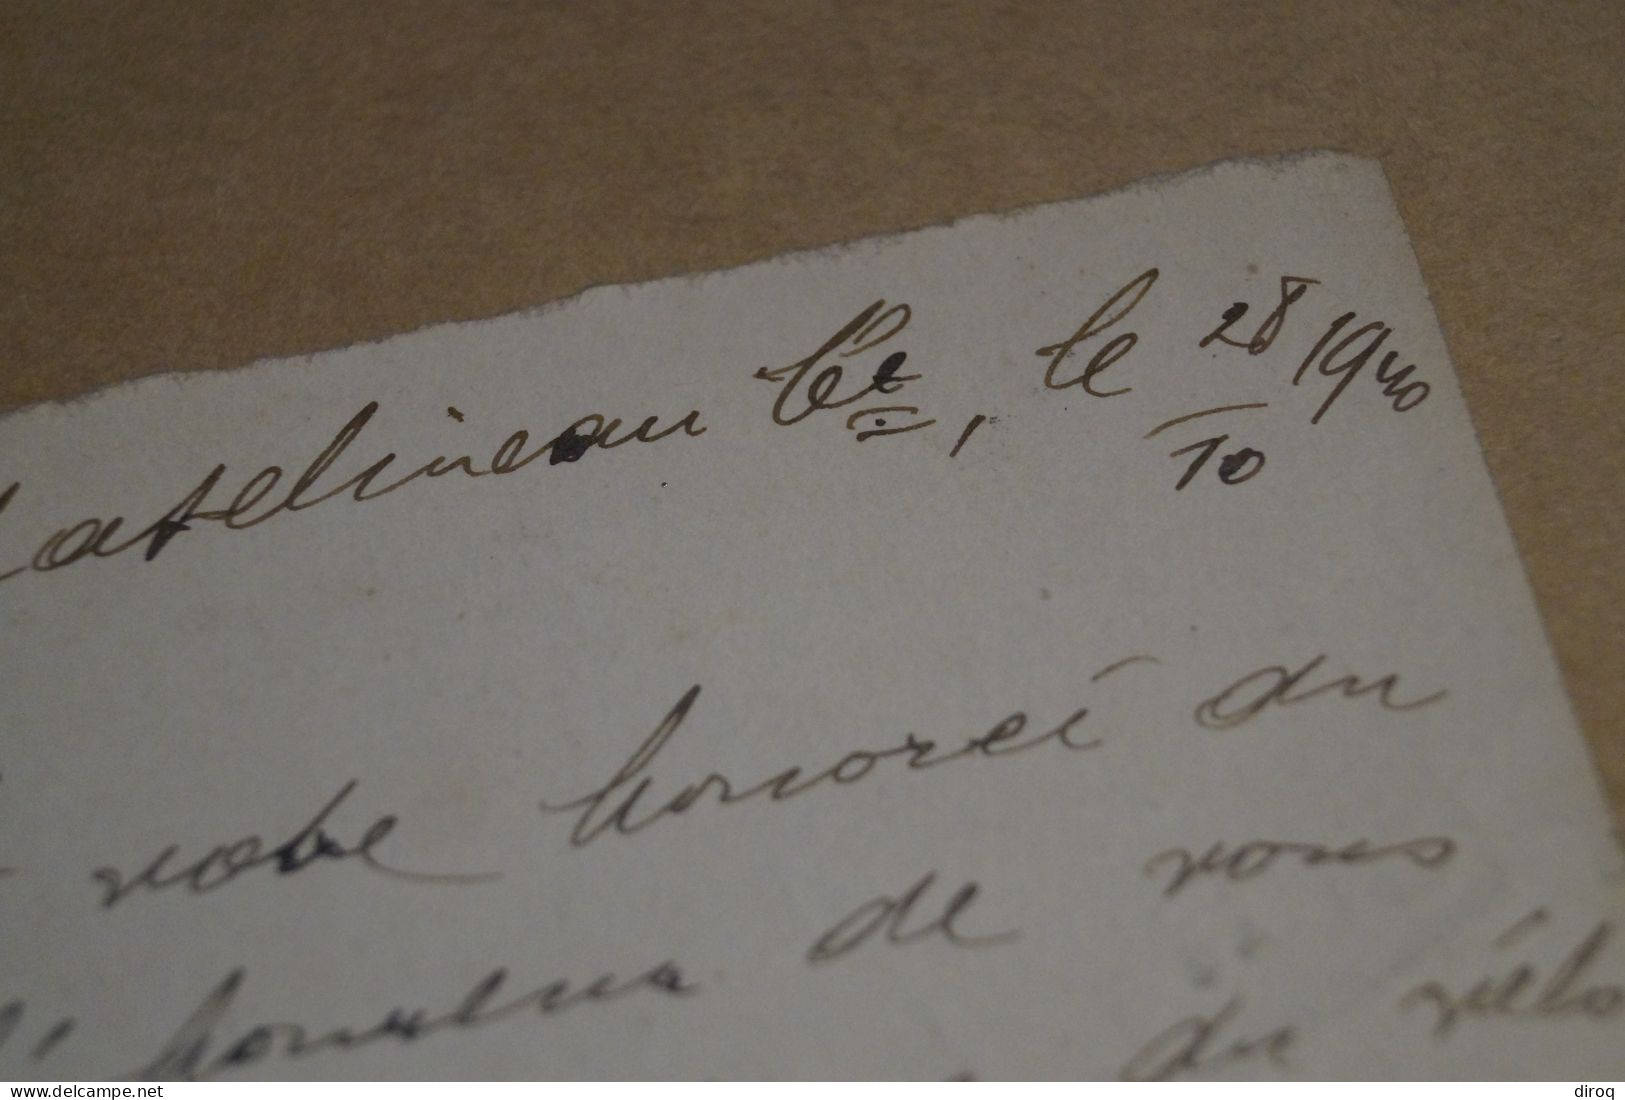 Chatelineau Cre, le 28/10 1940
votre honoré du
l'honneur de vous
du vélo
www.delcampe.net
diroq